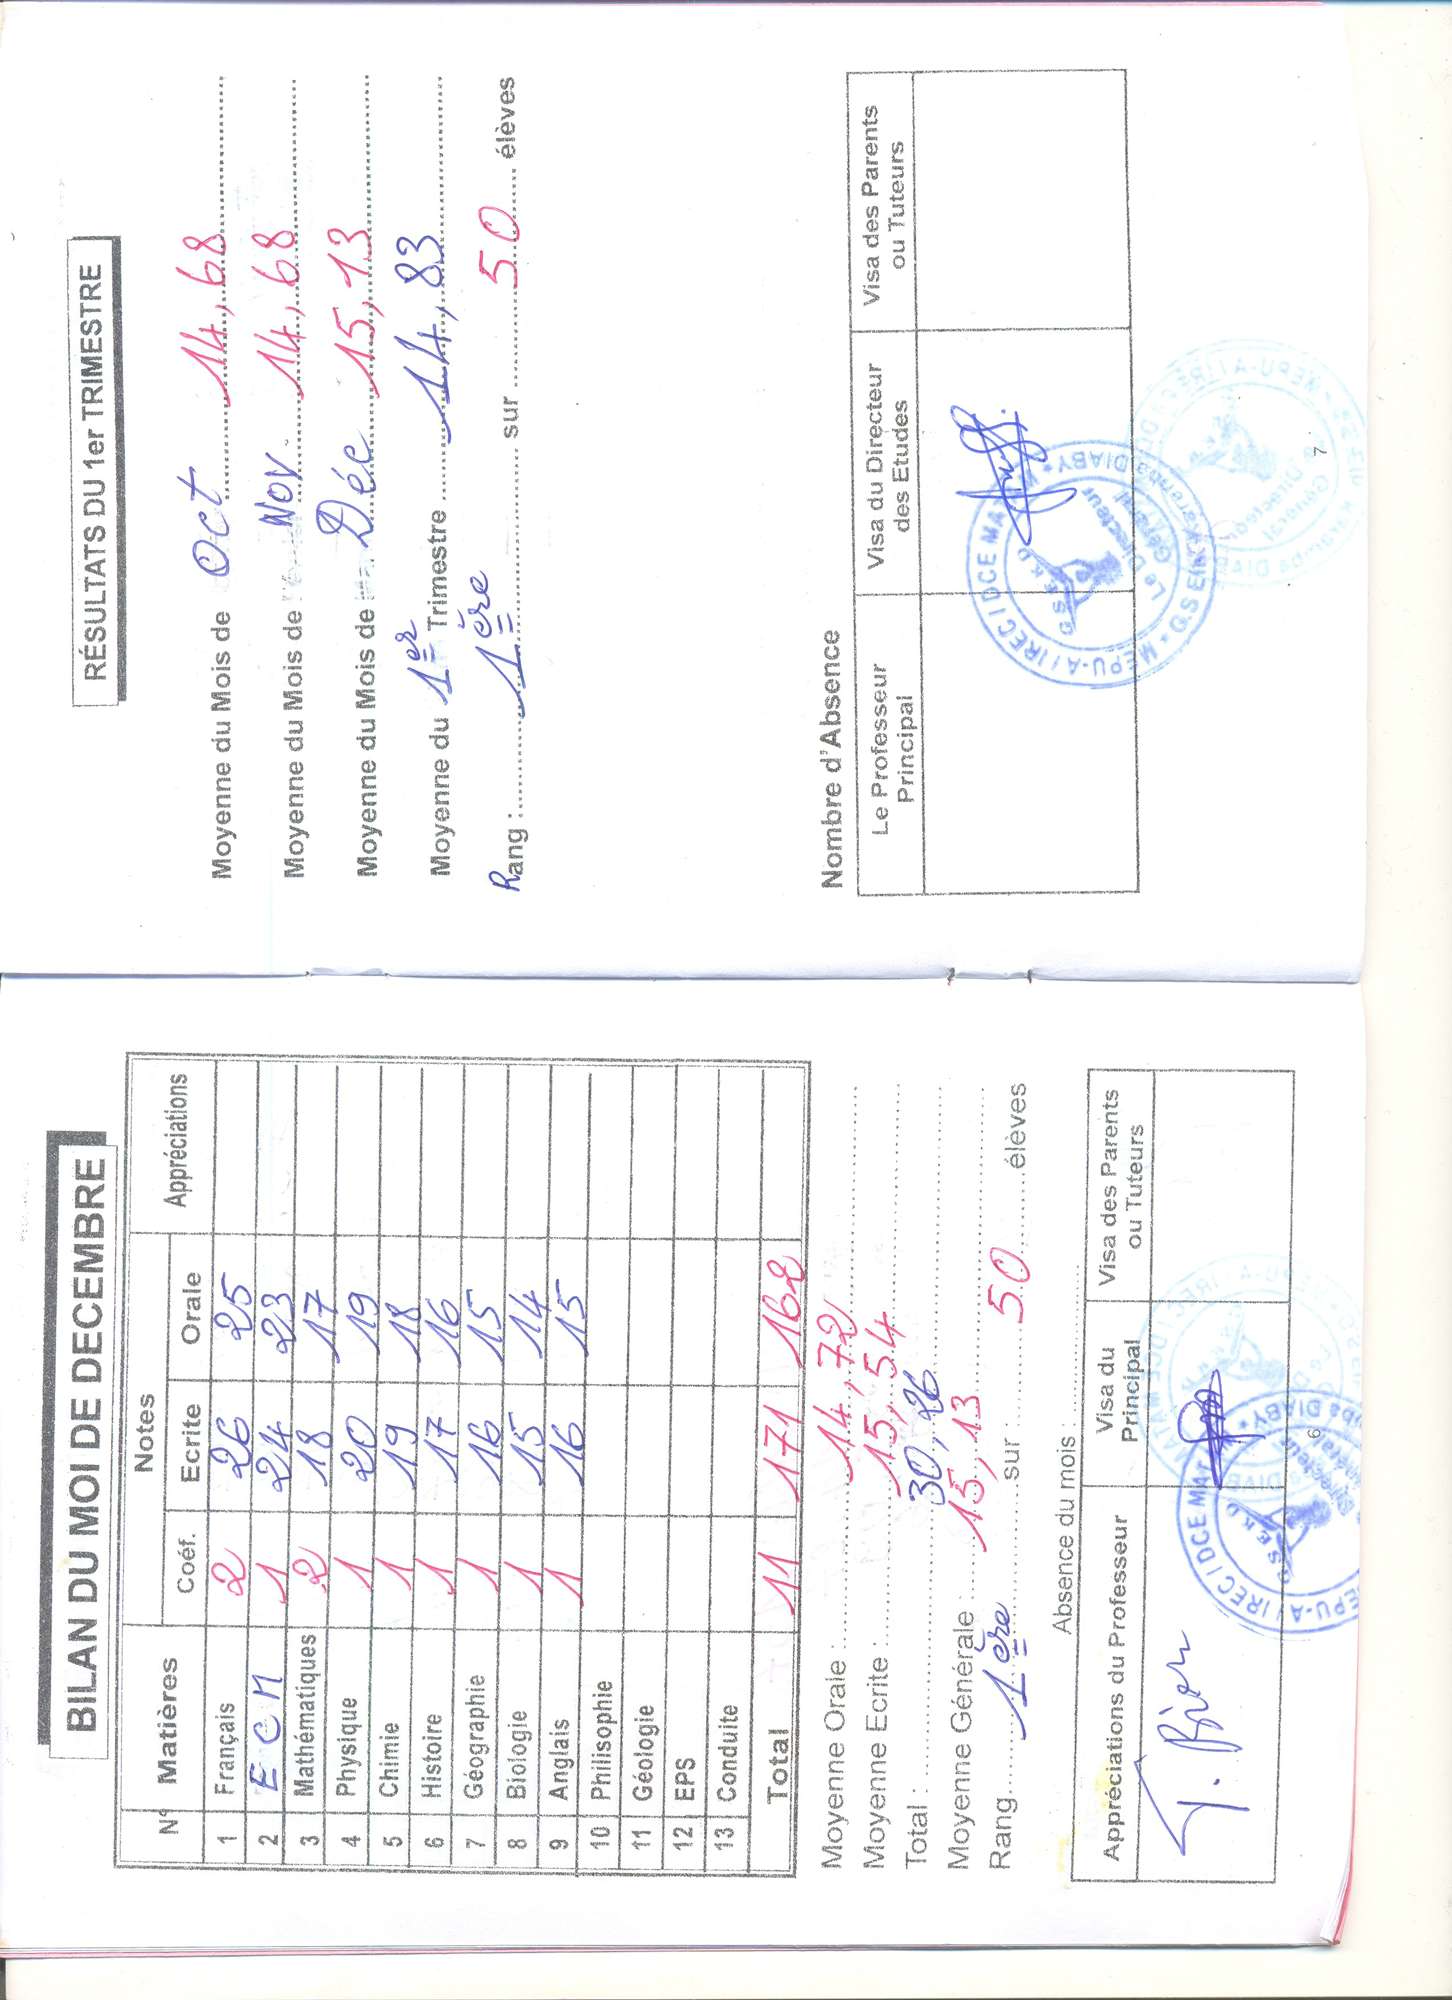 BILAN DU MOI DE DECEMBRE
N° Matières Notes Appréciations
Coéf. Ecrite Orale
1 Français 2 26 25
2 E C M 1 24 23
3 Mathématiques 2 18 17
4 Physique 1 20 19
5 Chimie 1 19 18
6 Histoire 1 17 16
7 Géographie 1 16 15
8 Biologie 1 15 14
9 Anglais 1 16 15
10 Philisophie
11 Géologie
12 EPS
13 Conduite
Total 11 171 162
Moyenne Orale : 14,72
Moyenne Ecrite : 15,54
Total : 30,26
Moyenne Générale : 15,13
Rang 1ère sur 50 élèves
Absence du mois :
Appréciations du Professeur
Visa du Principal
Visa des Parents ou Tuteurs
T. Bien
6
RÉSULTATS DU 1er TRIMESTRE
Moyenne du Mois de Oct 14,68
Moyenne du Mois de Nov 14,68
Moyenne du Mois de Déc 15,13
Moyenne du 1er Trimestre 14,83
Rang : 1ère sur 50 élèves
Nombre d'Absence
Le Professeur Principal
Visa du Directeur des Etudes
Visa des Parents ou Tuteurs
MEPU-A I IRE C I DCE MAT
G.S.E.K.D
Le Directeur Général
7